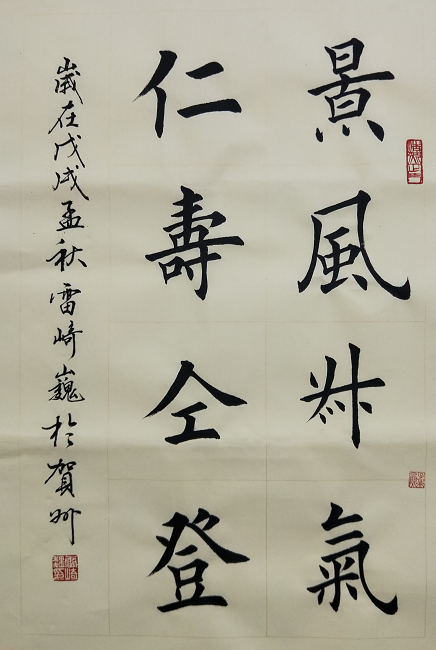 景風氣
仁壽仝登
歲在戊戌孟秋雷崎巍於賀州